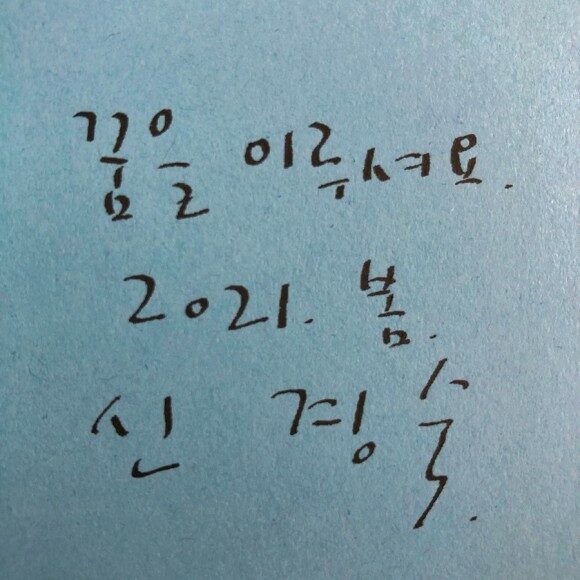 꿈을 이루셔요.
2021. 봄.
신 경숙.